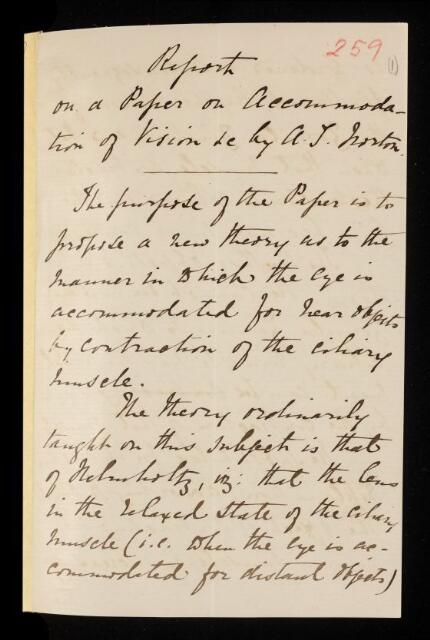 259
(1)
Report
on a Paper on Accommoda-
tion of Vision &c by A. T. Norton.
The purpose of the Paper is to
propose a new theory as to the
manner in which the eye is
accommodated for near objects
by contraction of the ciliary
muscle.
The theory ordinarily
taught on this subject is that
of Helmholtz, viz: that the lens
in the relaxed state of the ciliary
muscle (i.e. when the eye is ac-
commodated for distant objects)